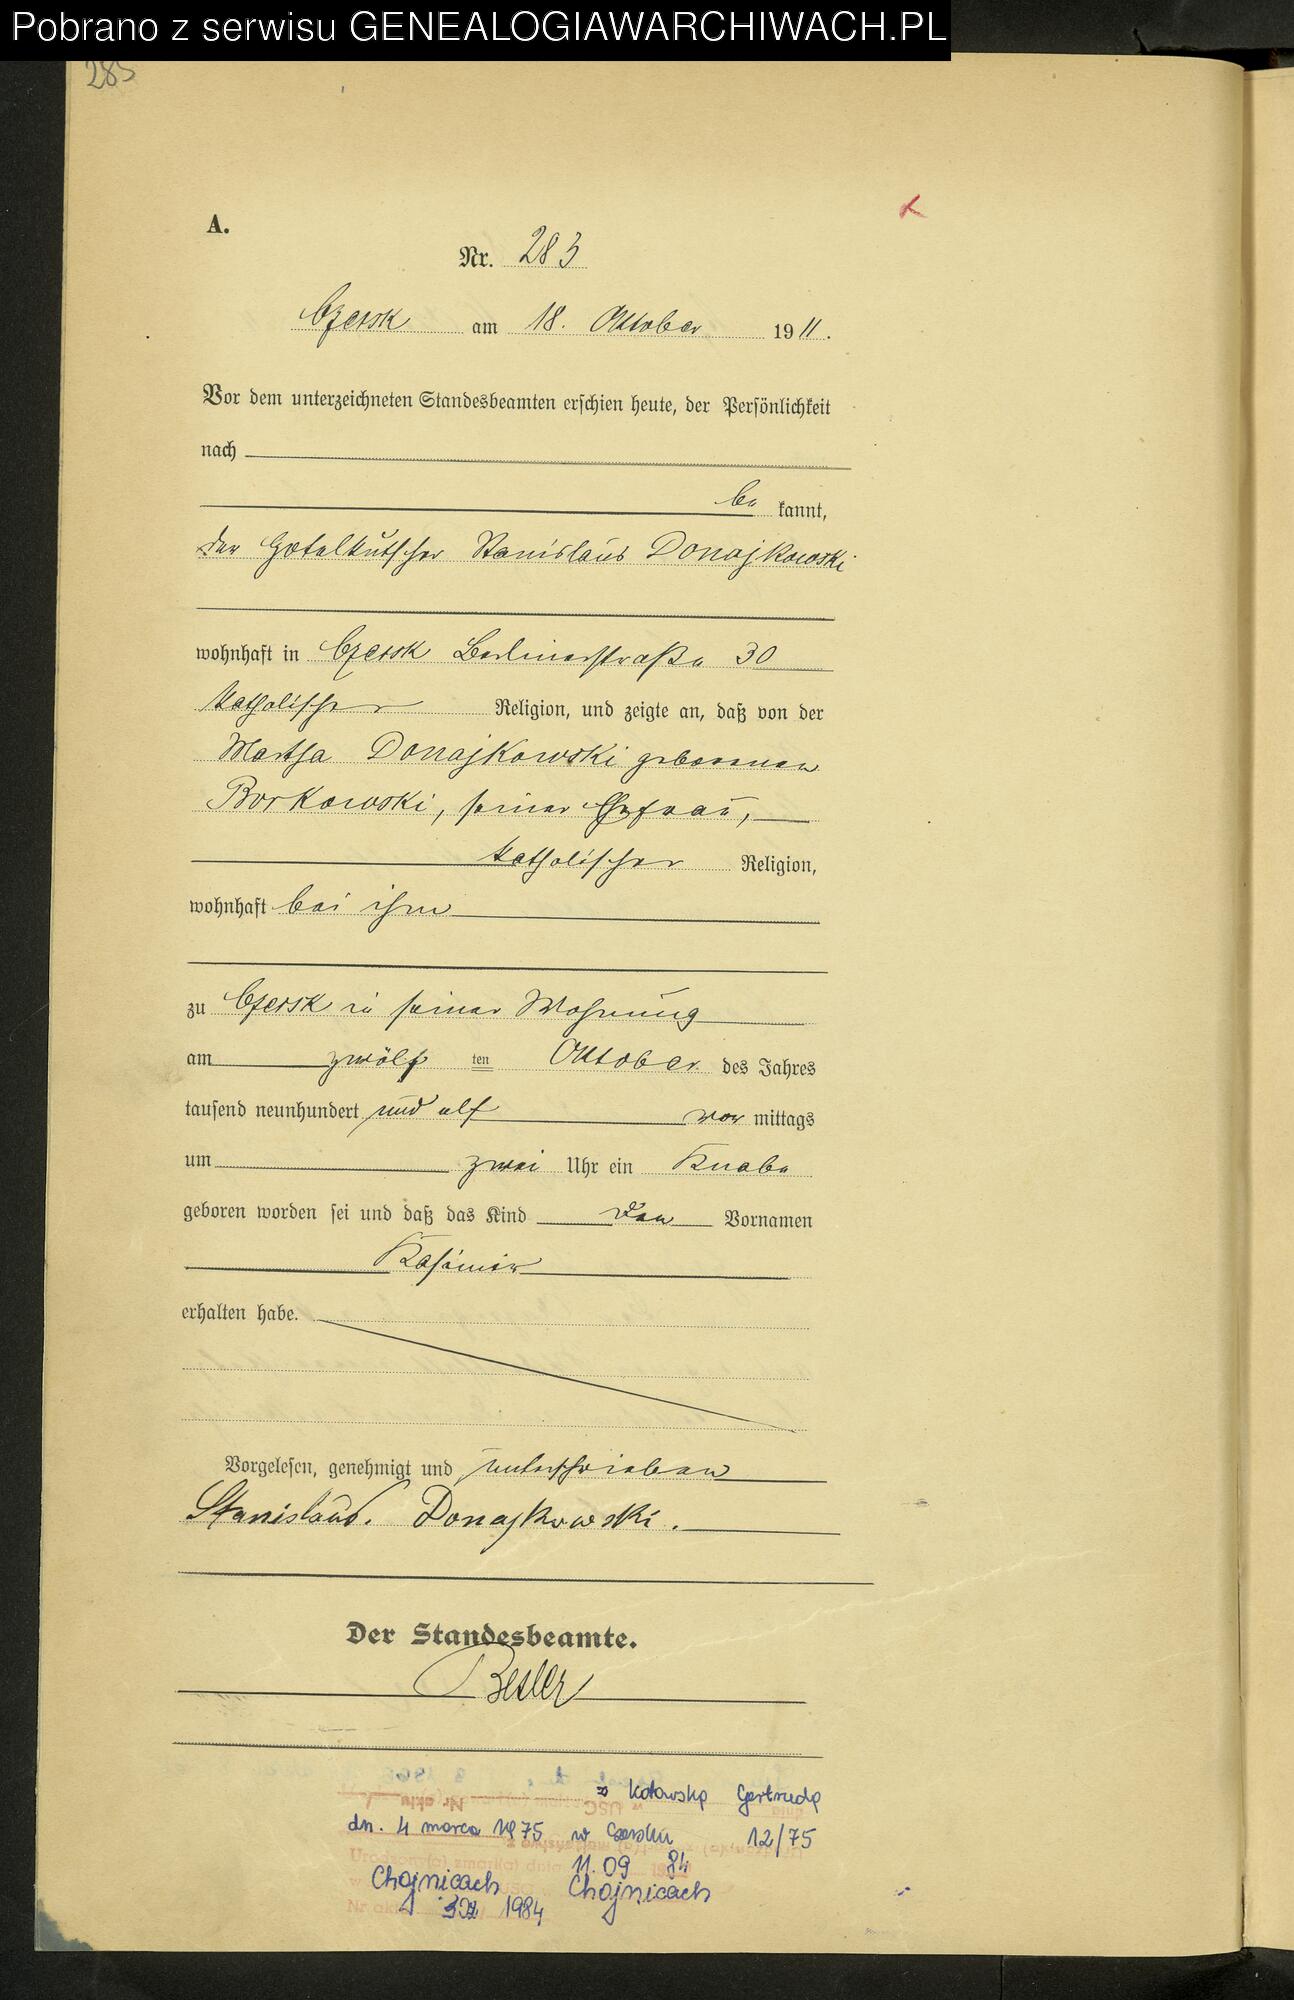 Pobrano z serwisu GENEALOGIAWARCHIWACH.PL
283
A.
Nr. 283
Czersk am 18. Oktober 1911.
Vor dem unterzeichneten Standesbeamten erschien heute, der Persönlichkeit
nach
be kannt,
der Hotelkutscher Stanislaus Donajkowski
wohnhaft in Czersk Berlinerstraße 30
katholischer Religion, und zeigte an, daß von der
Martha Donajkowski geborenen
Borkowski, seiner Ehefrau,
katholischer Religion,
wohnhaft bei ihm
zu Czersk in seiner Wohnung
am zwölf ten Oktober des Jahres
tausend neunhundert und elf vor mittags
um zwei Uhr ein Knabe
geboren worden sei und daß das Kind den Vornamen
Kasimir
erhalten habe.
Vorgelesen, genehmigt und unterschrieben
Stanislaus. Donajkowski.
Der Standesbeamte.
Besler
z Kotowską Gertrudą
dn. 4 marca 1975 w Czersku 12/75
11.09 84
Chojnicach Chojnicach
1984